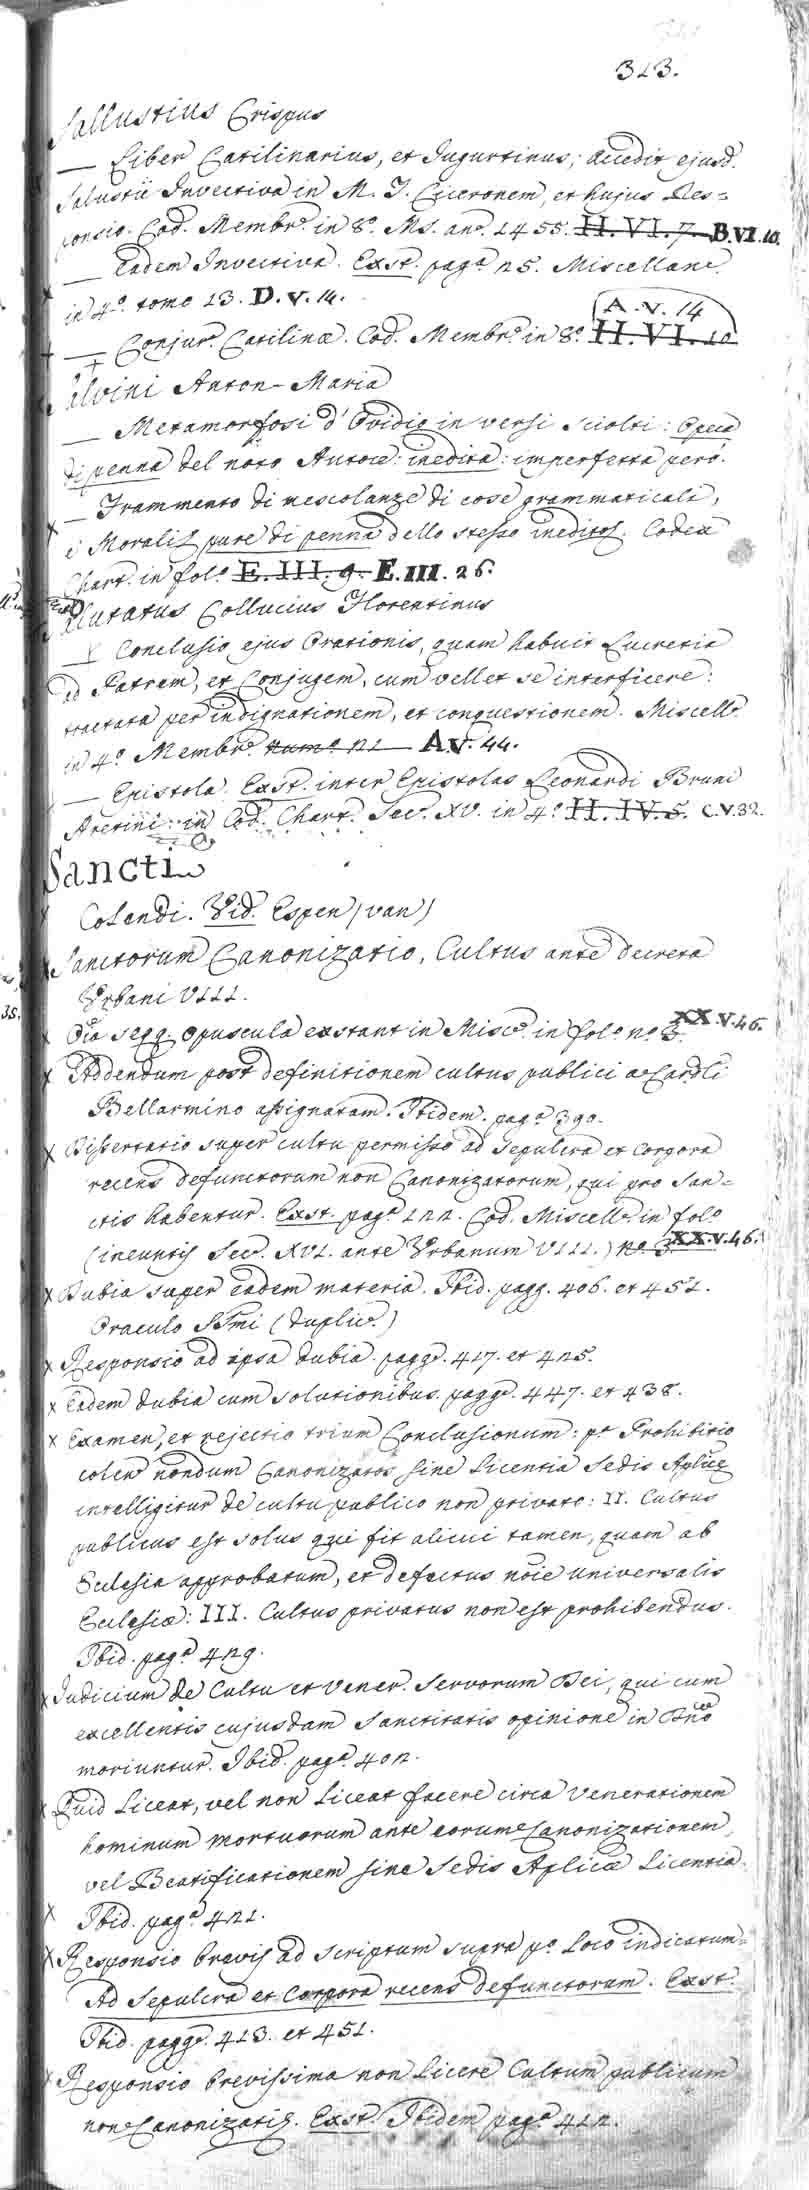 313.
Sallustius Crispus
— Liber Catilinarius, et Jugurtinus; accedit ejusd.
Salustii Invectiva in M. T. Ciceronem, et hujus Res=
ponsio. Cod. Membr. in 8.º Ms. an.º 1455. H. VI. 7. B. VI. 10.
— Eadem Invectiva. Exst. pag.ª 25. Miscellan.
in 4.º tomo 13. D. V. 14.
A. V. 14
— Conjur. Catilinæ. Cod. Membr. in 8.º H. VI. 10
Salvini Anton-Maria
— Metamorfosi d'Ovidio in versi sciolti: Opera
di penna del noto Autore: inedita: imperfetta però.
— Frammento di mescolanze di cose grammaticali,
e Morali pure di penna dello stesso inedito. Codex
Chart. in fol.º E. III. 9. E. III. 26.
Salutatus Collucius Florentinus
— Conclusio ejus Orationis, quam habuit Lucretia
ad Patrem, et Conjugem, cum vellet se interficere:
tractata per indignationem, et conquestionem. Miscell.
in 4.º Membr. num.º 21 A. V. 44.
— Epistola. Exst. inter Epistolas Leonardi Bruni
Aretini: in Cod. Chart. Sec. XV. in 4.º H. IV. 5. C. V. 32.
Sancti
Colendi. Vid. Espen (van)
Sanctorum Canonizatio, Cultus ante decreta
Urbani VIII.
Oia segg. opuscula exstant in Misc. in fol.º n.º 3. XX. V. 46.
Addendum post definitionem cultus publici a Cardli
Bellarmino assignatam. Ibidem. pag.ª 390.
Dissertatio super cultu permisso ad sepulcra et corpora
recens defunctorum non Canonizatorum, qui pro San=
ctis habentur. Exst. pag.ª 122. Cod. Miscell. in fol.º
(ineuntis Sec. XVI. ante Urbanum VIII.) n.º 3 XX. V. 46.
Dubia super eadem materia. Ibid. pagg. 406. et 451.
Oraculo SSmi (duplic.)
Responsio ad ipsa dubia. pagg. 417. et 425.
Eadem dubia cum solutionibus. pagg. 447. et 438.
Examen, et rejectio trium Conclusionum: pª Prohibitio
colen nondum Canonizatos sine Licentia Sedis Aplicæ
intelligitur de cultu publico non privato: II. Cultus
publicus est solus qui fit alicui tamen, quam ab
Ecclesia approbatum, et defectus noie universalis
Ecclesiæ: III. Cultus privatus non est prohibendus.
Ibid. pag.ª 429.
Judicium de Cultu et Vener. Servorum Dei, qui cum
excellentis cujusdam sanctitatis opinione in Dno
moriuntur. Ibid. pag.ª 402.
Quid Liceat, vel non Liceat facere circa Venerationem
hominum mortuorum ante eorum Canonizationem,
vel Beatificationem sine Sedis Aplicæ Licentia.
Ibid. pag.ª 421.
Responsio brevis ad scriptum supra pº Loco indicatum=
Ad Sepulcra et Corpora recens defunctorum. Exst.
Ibid. pagg. 413. et 451.
Responsio brevissima non Licere Cultum publicum
non Canonizatis. Exst. Ibidem pag.ª 412.